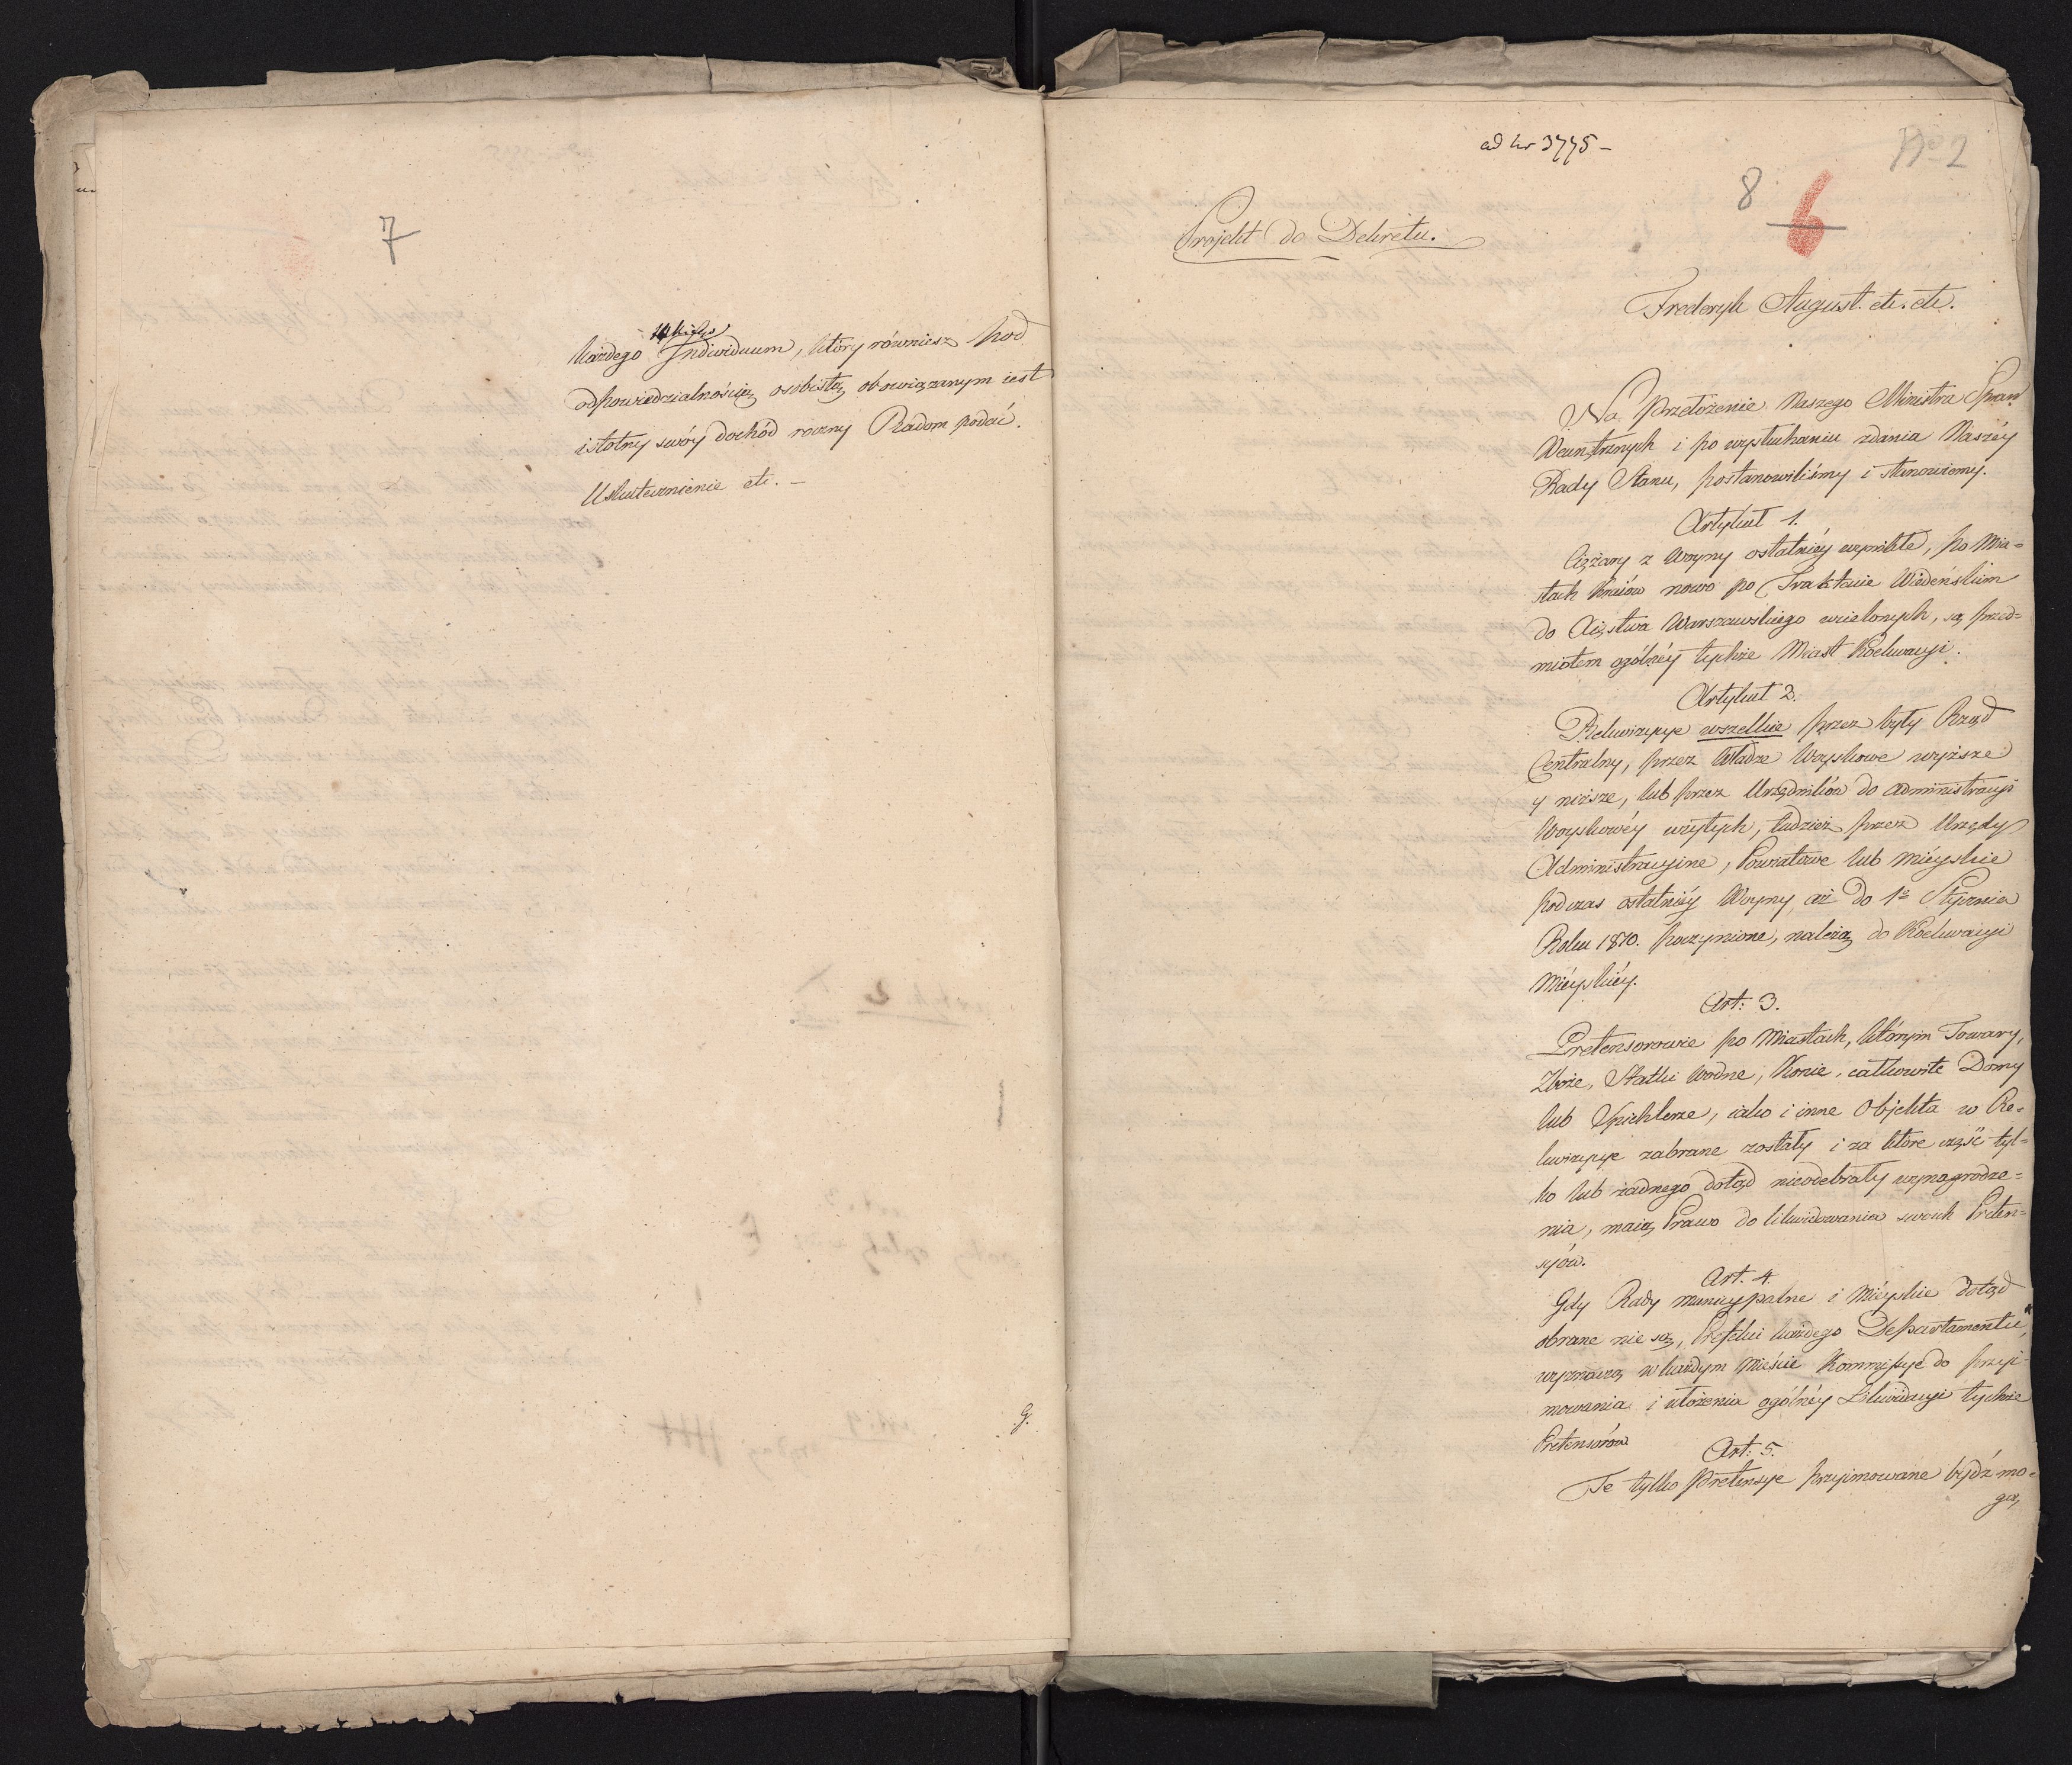 7
każdego Individuum, który równiesz pod
odpowiedzialnością osobistą obowiązanym iest
istotny swóy dochód roczny Radom podać.
Uskutecznienie etc. –
G.
ad No 3775 –
No 2
8 6
Projekt do Dekretu.
Frederyk August. etc. etc.
Na Przełożenie Naszego Ministra Spraw
Wewnętrznych i po wysłuchaniu zdania Naszéy
Rady Stanu, postanowiliśmy i stanowiemy.
Artykuł 1.
Ciężary z Woyny ostatniéy wynikłe, po Mia=
stach Kraiów nowo po Traktacie Wiedeńskim
do Xięstwa Warszawskiego wcielonych, są przed=
miotem ogólnéy tychże Miast Peréquacyi.
Artykuł 2.
Rekwizycye wszelkie przez były Rząd
Centralny, przez Władze Woyskowe wyższe
y niższe, lub przez Urzędników do administracyi
Woyskowéy użytych, tudzież przez Urzędy
Administracyine, Powiatowe lub mieyskie
podczas ostatniéy Woyny aż do 1o Stycznia
Roku 1810. poczynione, należą do Peréquacyi
Miéyskiéy.
Art: 3.
Pretensorowie po Miastach, którym Towary,
Zboże, Statki wodne, Konie, całkowite Domy
lub Spichlerze, iako i inne Objekta w Re=
kwizycye zabrane zostały i za które część tyl=
ko lub żadnego dotąd nieodebrały wynagrodze=
nia, maią Prawo do likwidowania swoich Preten=
syów.
Art. 4.
Gdy Rady municypalne i Mieyskie dotąd
obrane nie są, Prefekci każdego Departamentu,
wyznaczą w każdym Mieście Kommissye do przyi=
mowania i ułożenia ogólnéy Likwidacyi tychże
Pretensorów.
Art: 5.
Te tylko Pretensye przyimowane bydź mo=
gą,